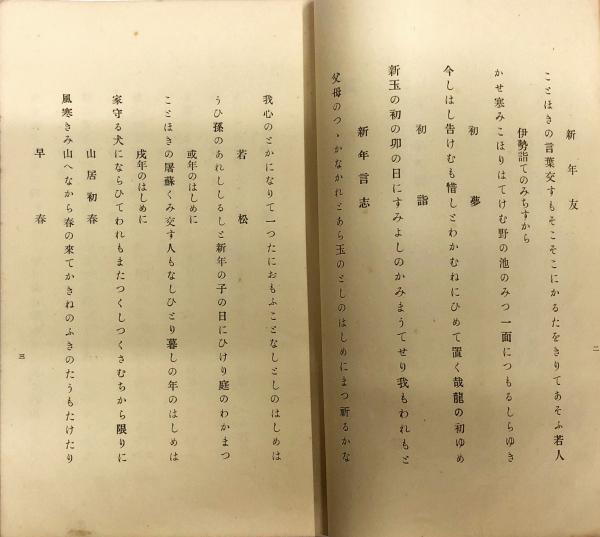 新年友
ことほきの言葉交すもそこそこにかるたをきりてあそふ若人
伊勢詣てのみちすから
かせ寒みこほりはてけむ野の池のみつ一面につもるしらゆき
初夢
今しはし告けむも惜しとわかむねにひめて置く哉龍の初ゆめ
初詣
新玉の初の卯の日にすみよしのかみまうてせり我もわれもと
新年言志
父母のつゝかなかれとあら玉のとしのはしめにまつ祈るかな
二
我心のとかになりて一つたにおもふことなしとしのはしめは
若松
うひ孫のあれしゝるしと新年の子の日にひけり庭のわかまつ
或年のはしめに
ことほきの屠蘇くみ交す人もなしひとり暮しの年のはしめは
戌年のはしめに
家守る犬にならひてわれもまたつくしつくさむちから限りに
山居初春
風寒きみ山へなから春の來てかきねのふきのたうもたけたり
早春
三